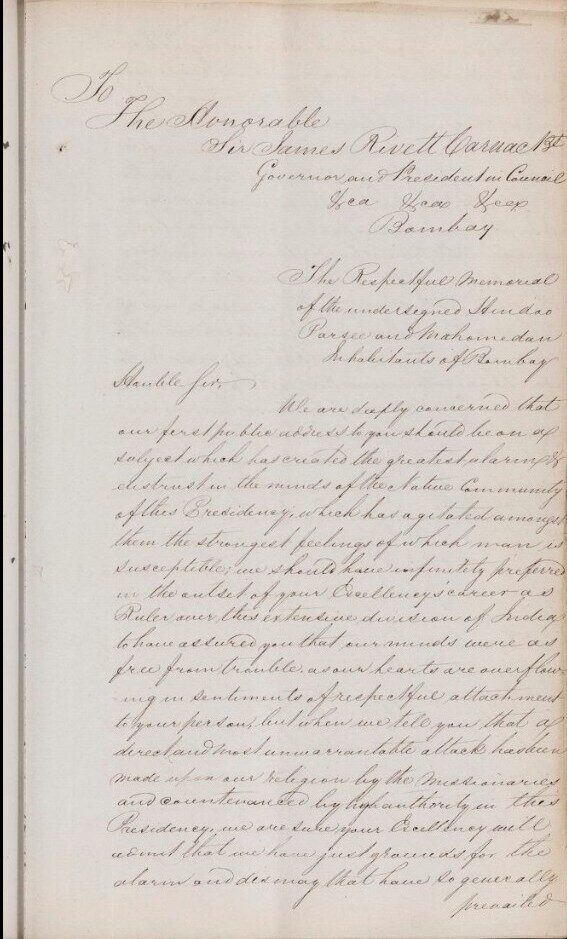 To
The Honorable
Sir James Rivett Carnac Bt
Governor and President in Council
&ca &ca &ca
Bombay
The Respectful Memorial
of the undersigned Hindoo
Parsee and Mahomedan
Inhabitants of Bombay
Honble Sir,
We are deeply concerned that
our first public address to you should be on a
subject which has created the greatest alarm &
distrust in the minds of the Native Community
of this Presidency, which has agitated amongst
them the strongest feelings of which man is
susceptible; we should have infinitely preferred
in the outset of your Excellency's career as
Ruler over this extensive division of India
to have assured you that our minds were as
free from trouble as our hearts are overflow-
ing in sentiments of respectful attachment
to your person, but when we tell you that a
direct and most unwarrantable attack has been
made upon our religion by the Missionaries
and countenanced by high authority in this
Presidency, we are sure your Excellency will
admit that we have just grounds for the
alarm and dismay that have so generally
prevailed